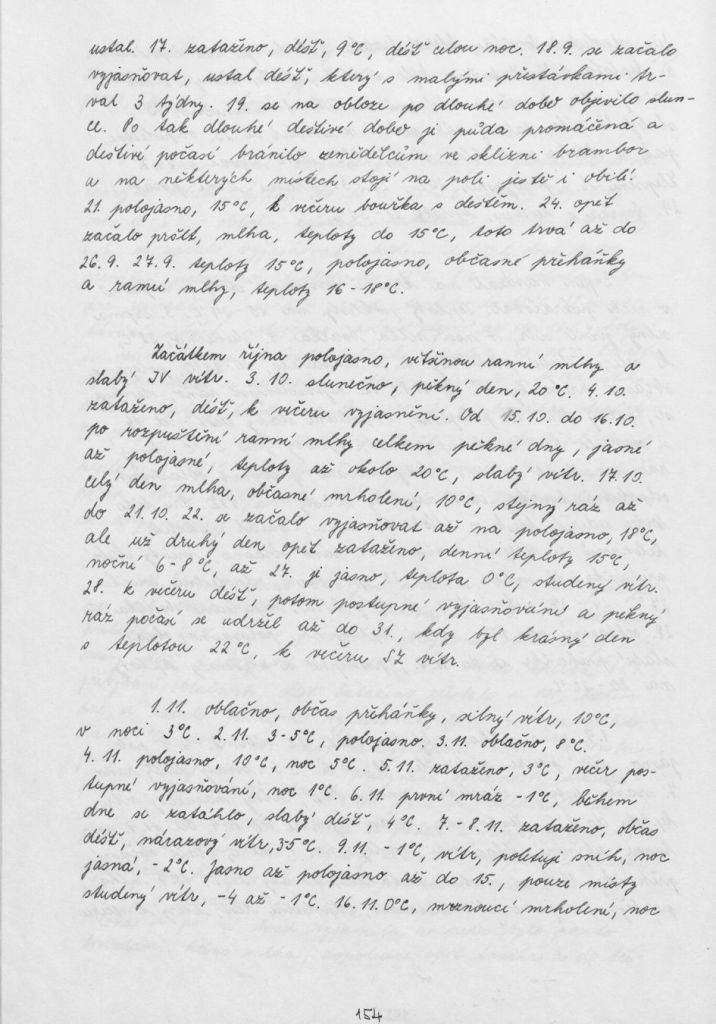 ustal. 17. zataženo, déšť, 9°C, déšť celou noc. 18.9. se začalo
vyjasňovat, ustal déšť, který s malými přestávkami tr-
val 3 týdny. 19. se na obloze po dlouhé době objevilo slun-
ce. Po tak dlouhé deštivé době je půda promáčená a
deštivé počasí bránilo zemědělcům ve sklizni brambor
a na některých místech stojí na poli ještě i obilí.
21. polojasno, 15°C, k večeru bouřka s deštěm. 24. opět
začalo pršet, mlha, teploty do 15°C, toto trvá až do
26.9. 27.9. teploty 15°C, polojasno, občasné přeháňky
a ranní mlhy, teploty 16-18°C.
Začátkem října polojasno, většinou ranní mlhy a
slabý JV vítr. 3.10. slunečno, pěkný den, 20°C. 4.10.
zataženo, déšť, k večeru vyjasnění. Od 15.10. do 16.10.
po rozpuštění ranní mlhy celkem pěkné dny, jasné
až polojasné, teploty až okolo 20°C, slabý vítr. 17.10.
celý den mlha, občasné mrholení, 10°C, stejný ráz až
do 21.10. 22. se začalo vyjasňovat až na polojasno, 18°C,
ale už druhý den opět zataženo, denní teploty 15°C,
noční 6-8°C, až 27. je jasno, teplota 0°C, studený vítr.
28. k večeru déšť, potom postupné vyjasňování a pěkný
ráz počasí se udržel až do 31., kdy byl krásný den
s teplotou 22°C, k večeru SZ vítr.
1.11. oblačno, občas přeháňky, silný vítr, 10°C,
v noci 3°C. 2.11. 3-5°C, polojasno. 3.11. oblačno, 8°C.
4.11. polojasno, 10°C, noc 5°C. 5.11. zataženo, 3°C, večer pos-
tupné vyjasňování, noc 1°C. 6.11. první mráz -1°C, během
dne se zatáhlo, slabý déšť, 4°C. 7.-8.11. zataženo, občas
déšť, nárazový vítr, 3-5°C. 9.11. -1°C, vítr, poletuje sníh, noc
jasná, -2°C. Jasno až polojasno až do 15., pouze místy
studený vítr, -4 až -1°C. 16.11. 0°C, mrznoucí mrholení, noc
154